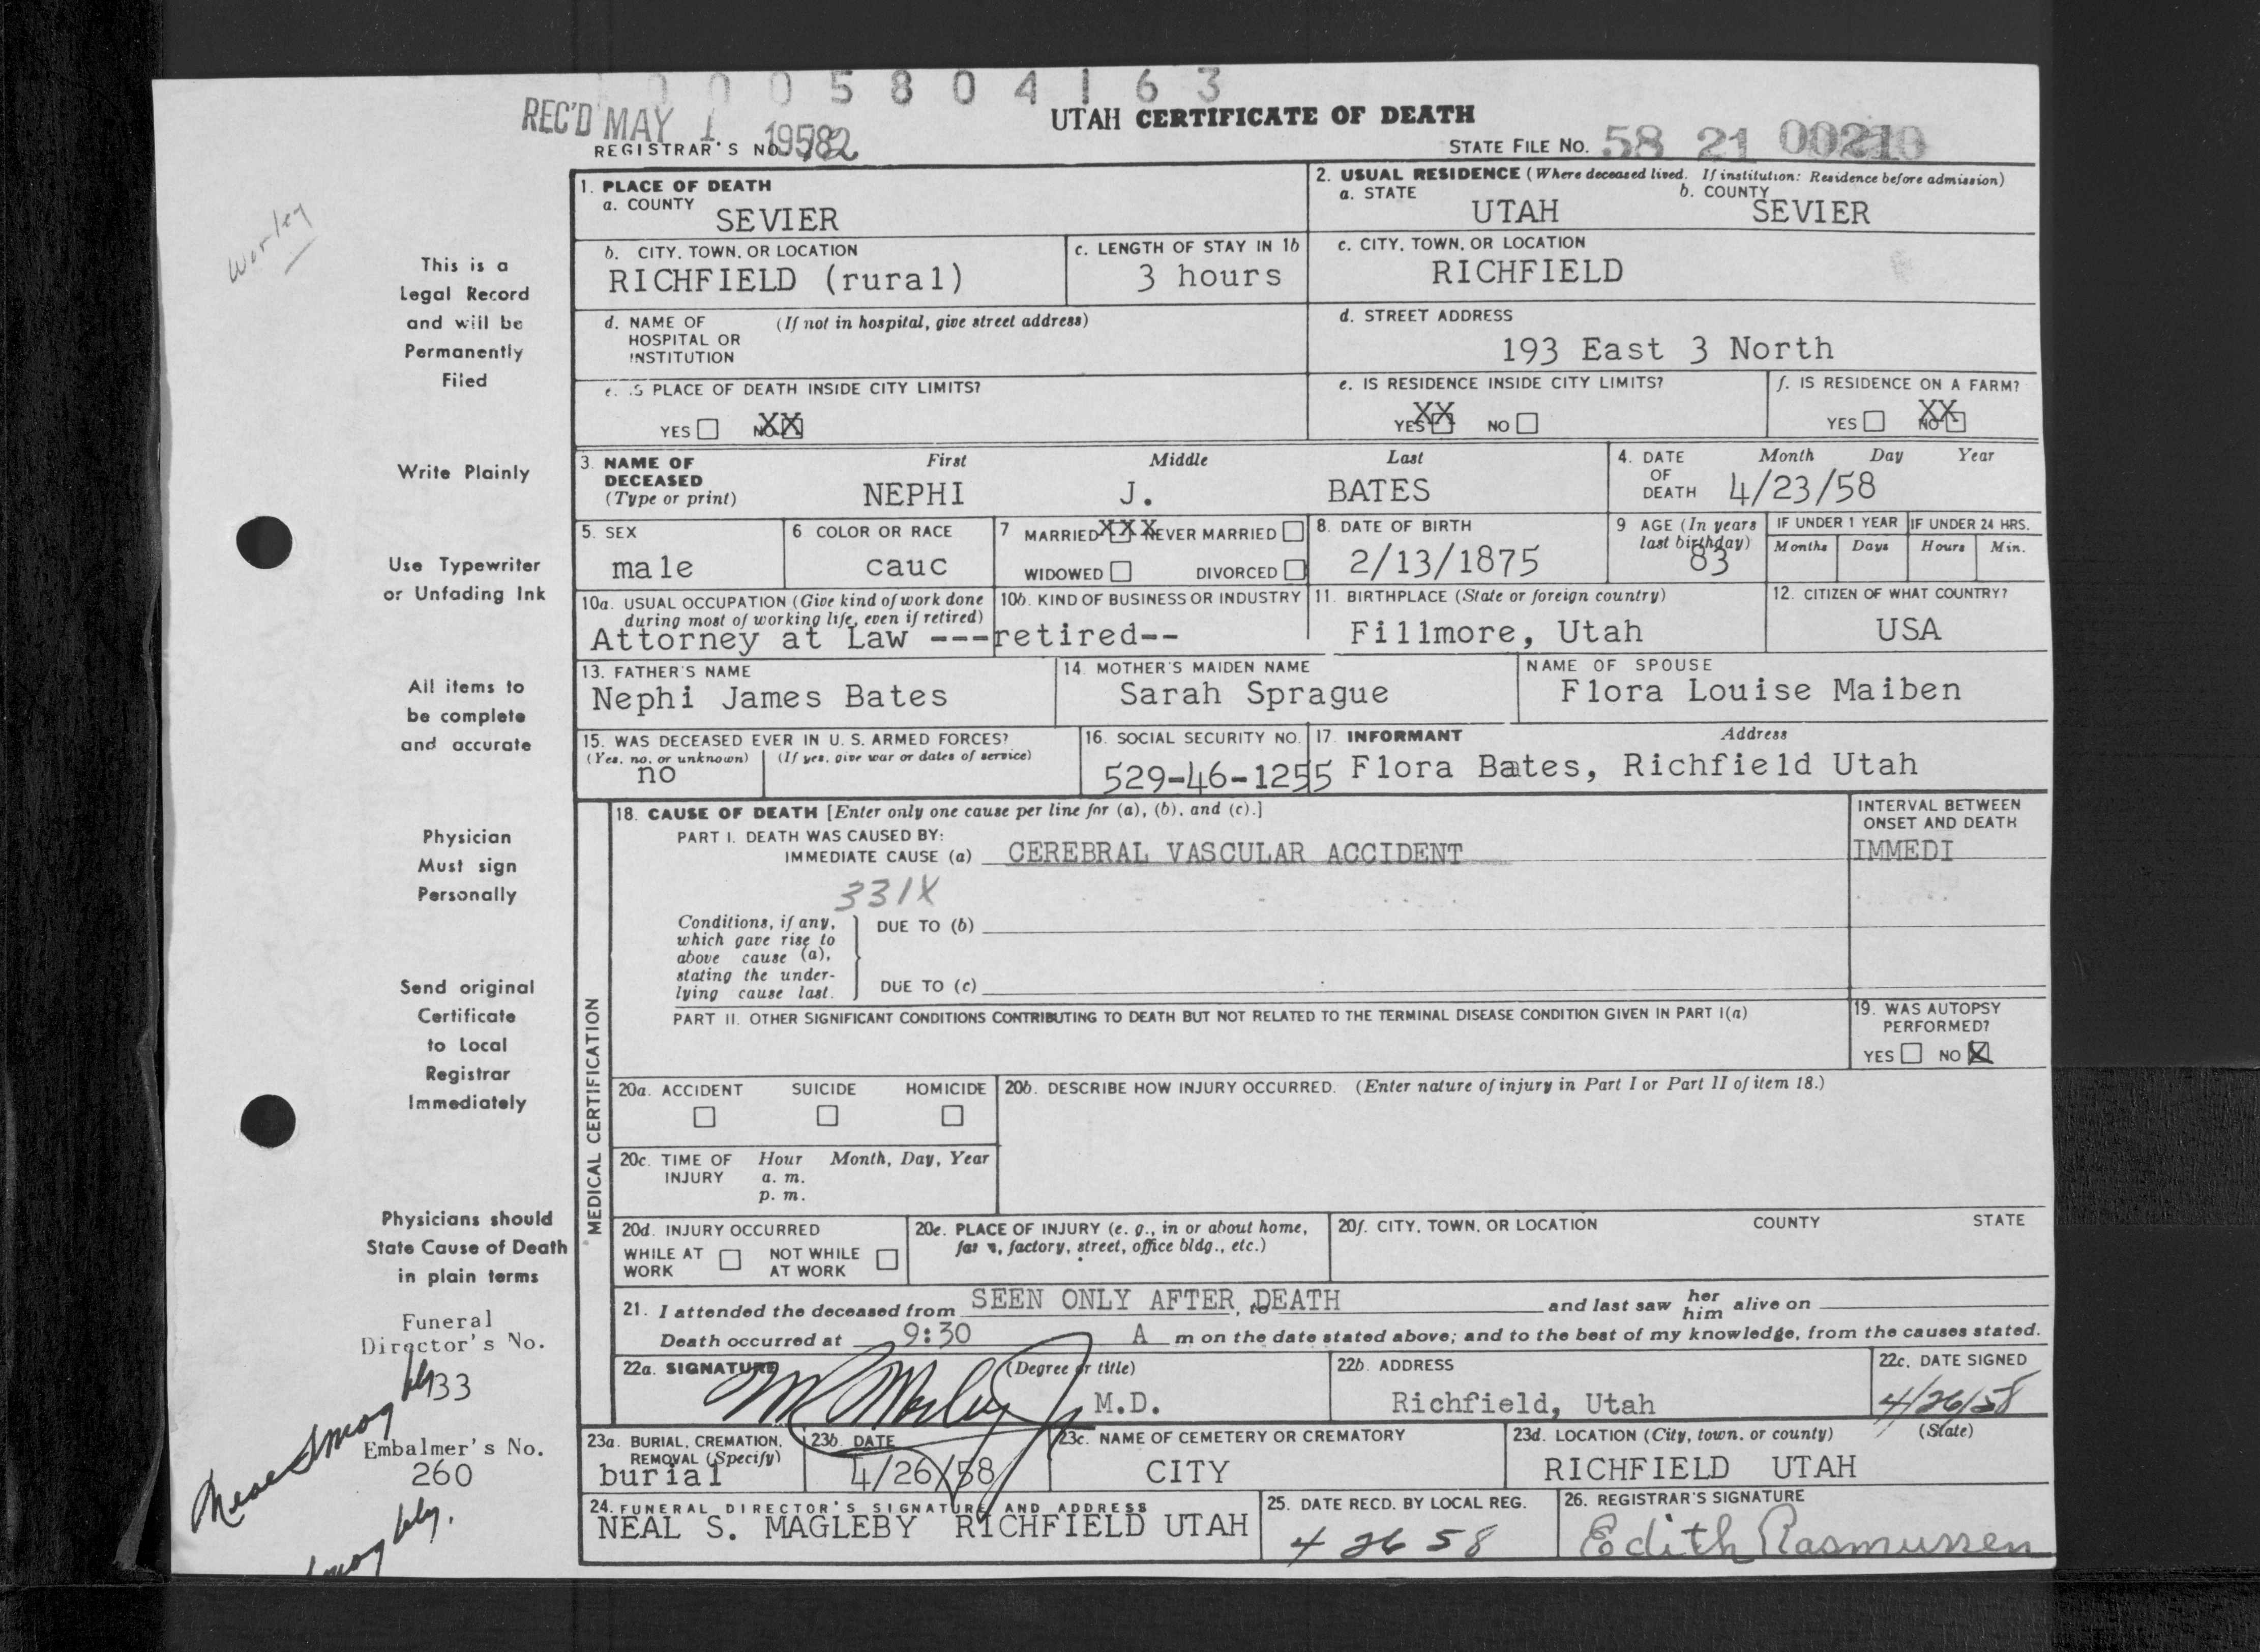 0 0 0 5 8 0 4 1 6 3
REC'D MAY 1 1958
UTAH CERTIFICATE OF DEATH
REGISTRAR'S NO. 82
STATE FILE NO. 58 21 00210
Worley
1. PLACE OF DEATH
a. COUNTY
SEVIER
2. USUAL RESIDENCE (Where deceased lived. If institution: Residence before admission)
a. STATE b. COUNTY
UTAH SEVIER
b. CITY, TOWN, OR LOCATION
RICHFIELD (rural)
c. LENGTH OF STAY IN 1b
3 hours
c. CITY, TOWN, OR LOCATION
RICHFIELD
d. NAME OF (If not in hospital, give street address)
HOSPITAL OR
INSTITUTION
d. STREET ADDRESS
193 East 3 North
e. IS PLACE OF DEATH INSIDE CITY LIMITS?
YES NO XX
e. IS RESIDENCE INSIDE CITY LIMITS?
YES XX NO
f. IS RESIDENCE ON A FARM?
YES NO XX
3. NAME OF DECEASED (Type or print)
First Middle Last
NEPHI J. BATES
4. DATE OF DEATH
Month Day Year
4/23/58
5. SEX
male
6 COLOR OR RACE
cauc
7 MARRIED XXX NEVER MARRIED
WIDOWED DIVORCED
8. DATE OF BIRTH
2/13/1875
9 AGE (In years last birthday)
83
IF UNDER 1 YEAR IF UNDER 24 HRS.
Months Days Hours Min.
10a. USUAL OCCUPATION (Give kind of work done
during most of working life, even if retired)
10b. KIND OF BUSINESS OR INDUSTRY
Attorney at Law ---retired--
11. BIRTHPLACE (State or foreign country)
Fillmore, Utah
12. CITIZEN OF WHAT COUNTRY?
USA
13. FATHER'S NAME
Nephi James Bates
14. MOTHER'S MAIDEN NAME
Sarah Sprague
NAME OF SPOUSE
Flora Louise Maiben
15. WAS DECEASED EVER IN U. S. ARMED FORCES?
(Yes, no, or unknown) (If yes, give war or dates of service)
no
16. SOCIAL SECURITY NO.
529-46-1255
17. INFORMANT Address
Flora Bates, Richfield Utah
18. CAUSE OF DEATH [Enter only one cause per line for (a), (b), and (c).]
PART I. DEATH WAS CAUSED BY:
IMMEDIATE CAUSE (a) CEREBRAL VASCULAR ACCIDENT
INTERVAL BETWEEN
ONSET AND DEATH
IMMEDI
331X
Conditions, if any,
which gave rise to
above cause (a),
stating the under-
lying cause last.
DUE TO (b)
DUE TO (c)
PART II. OTHER SIGNIFICANT CONDITIONS CONTRIBUTING TO DEATH BUT NOT RELATED TO THE TERMINAL DISEASE CONDITION GIVEN IN PART I(a)
19. WAS AUTOPSY
PERFORMED?
YES NO X
MEDICAL CERTIFICATION
20a. ACCIDENT SUICIDE HOMICIDE
20b. DESCRIBE HOW INJURY OCCURRED. (Enter nature of injury in Part I or Part II of item 18.)
20c. TIME OF INJURY
Hour Month, Day, Year
a. m.
p. m.
20d. INJURY OCCURRED
WHILE AT WORK NOT WHILE AT WORK
20e. PLACE OF INJURY (e. g., in or about home,
farm, factory, street, office bldg., etc.)
20f. CITY, TOWN, OR LOCATION COUNTY STATE
21. I attended the deceased from SEEN ONLY AFTER, to DEATH and last saw her him alive on
Death occurred at 9:30 A m on the date stated above; and to the best of my knowledge, from the causes stated.
22a. SIGNATURE (Degree or title)
M.D.
22b. ADDRESS
Richfield, Utah
22c. DATE SIGNED
4/26/58
23a. BURIAL, CREMATION,
REMOVAL (Specify)
burial
23b. DATE
4/26/58
23c. NAME OF CEMETERY OR CREMATORY
CITY
23d. LOCATION (City, town, or county) (State)
RICHFIELD UTAH
24. FUNERAL DIRECTOR'S SIGNATURE AND ADDRESS
NEAL S. MAGLEBY RICHFIELD UTAH
25. DATE RECD. BY LOCAL REG.
4 26 58
26. REGISTRAR'S SIGNATURE
Edith Rasmussen
This is a
Legal Record
and will be
Permanently
Filed
Write Plainly
Use Typewriter
or Unfading Ink
All items to
be complete
and accurate
Physician
Must sign
Personally
Send original
Certificate
to Local
Registrar
Immediately
Physicians should
State Cause of Death
in plain terms
Funeral
Director's No.
433
Embalmer's No.
260
Neal S Magleby